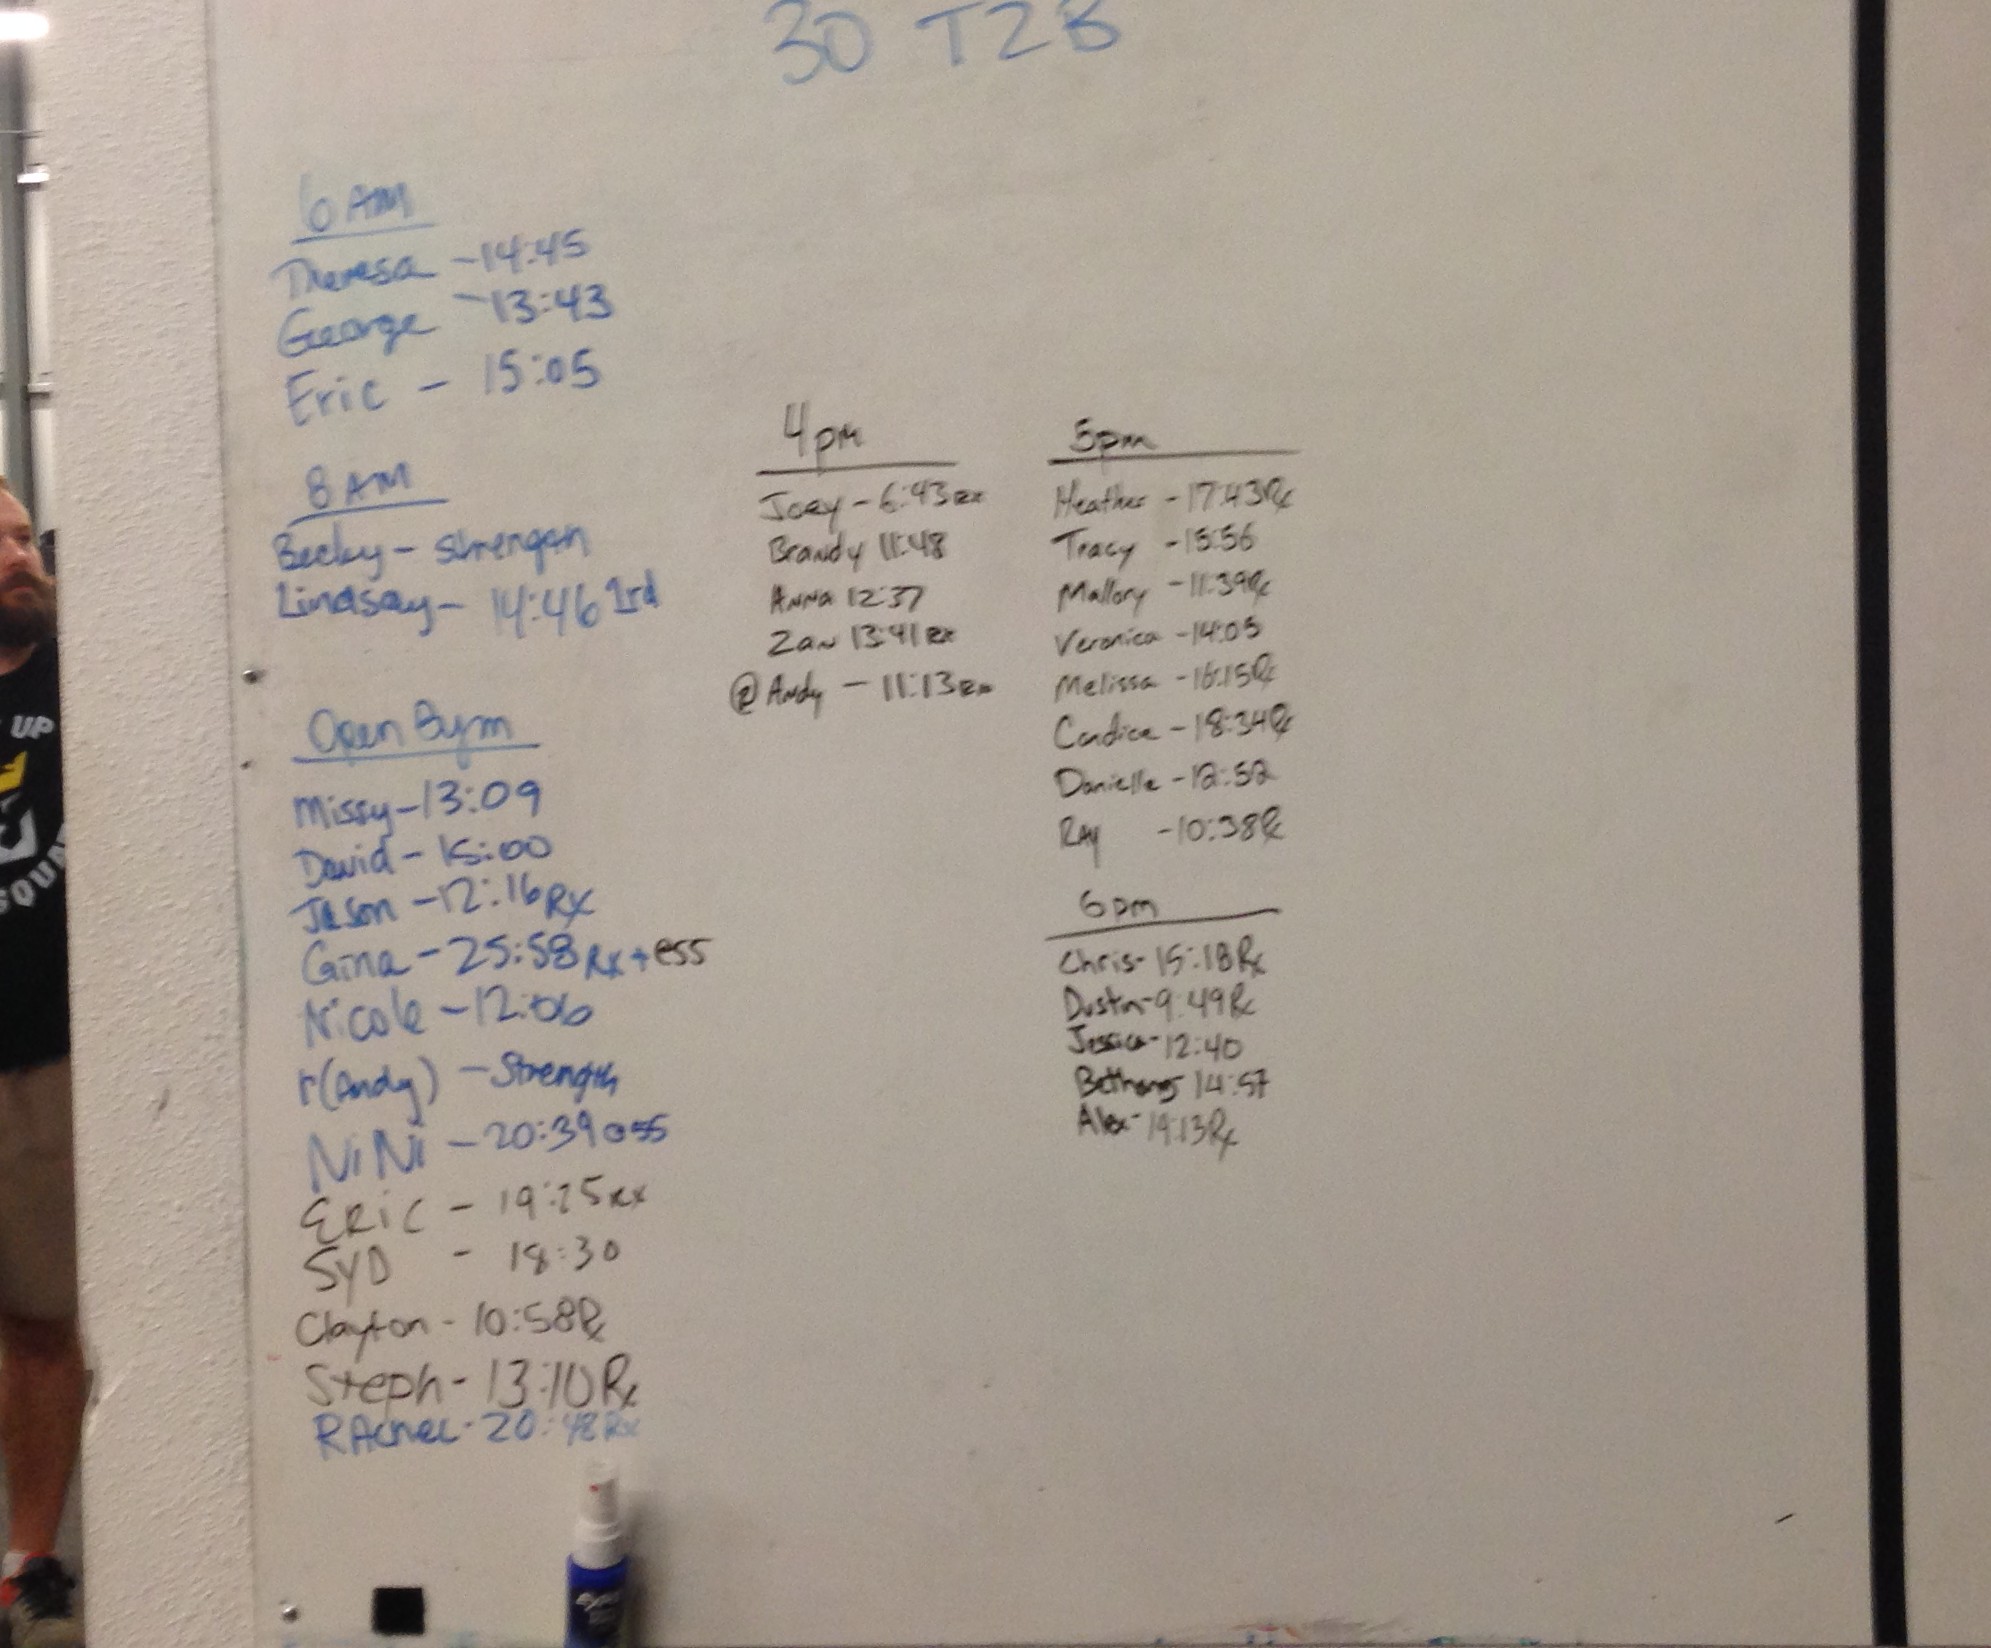 30 T2B
6 AM
Theresa - 14:45
George - 13:43
Eric - 15:05
8 AM
Becky - strength
Lindsay - 14:46 1rd
Open Gym
Missy - 13:09
David - 15:00
Jason - 12:16 Rx
Gina - 25:58 Rx + ess
Nicole - 12:06
r(Andy) - Strength
NiNi - 20:39 ess
ERiC - 19:25 Rx
SYD - 18:30
Clayton - 10:58 Rx
Steph - 13:10 Rx
RAchel - 20:48 Rx
4pm
Joey - 6:43 Rx
Brandy 11:48
Anna 12:37
Zan 13:41 Rx
@ Andy - 11:13 Rx
5pm
Heather - 17:43 Rx
Tracy - 15:56
Mallory - 11:39 Rx
Veronica - 14:05
Melissa - 16:15 Rx
Candice - 18:34 Rx
Danielle - 12:52
Ray - 10:38 Rx
6pm
Chris - 15:18 Rx
Dustin - 9:49 Rx
Jessica - 12:40
Bethany 14:57
Alex - 14:13 Rx
UP
SQUA